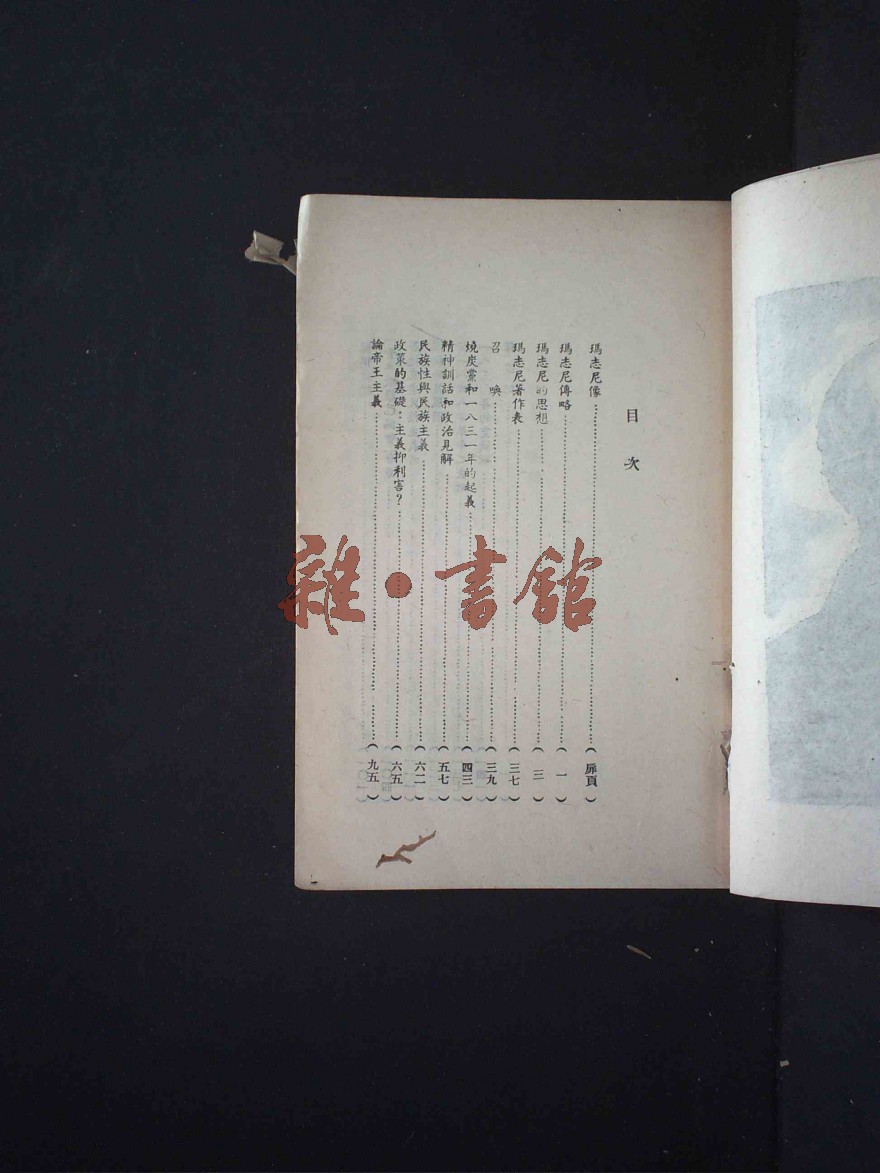 目次
瑪志尼像……(扉頁)
瑪志尼傳略……(一)
瑪志尼的思想……(三)
瑪志尼著作表……(三七)
召喚……(三九)
燒炭黨和一八三一年的起義……(四三)
精神訓話和政治見解……(五七)
民族性與民族主義……(六二)
政策的基礎：主義抑利害？……(六五)
論帝王主義……(九五)
雜·書館